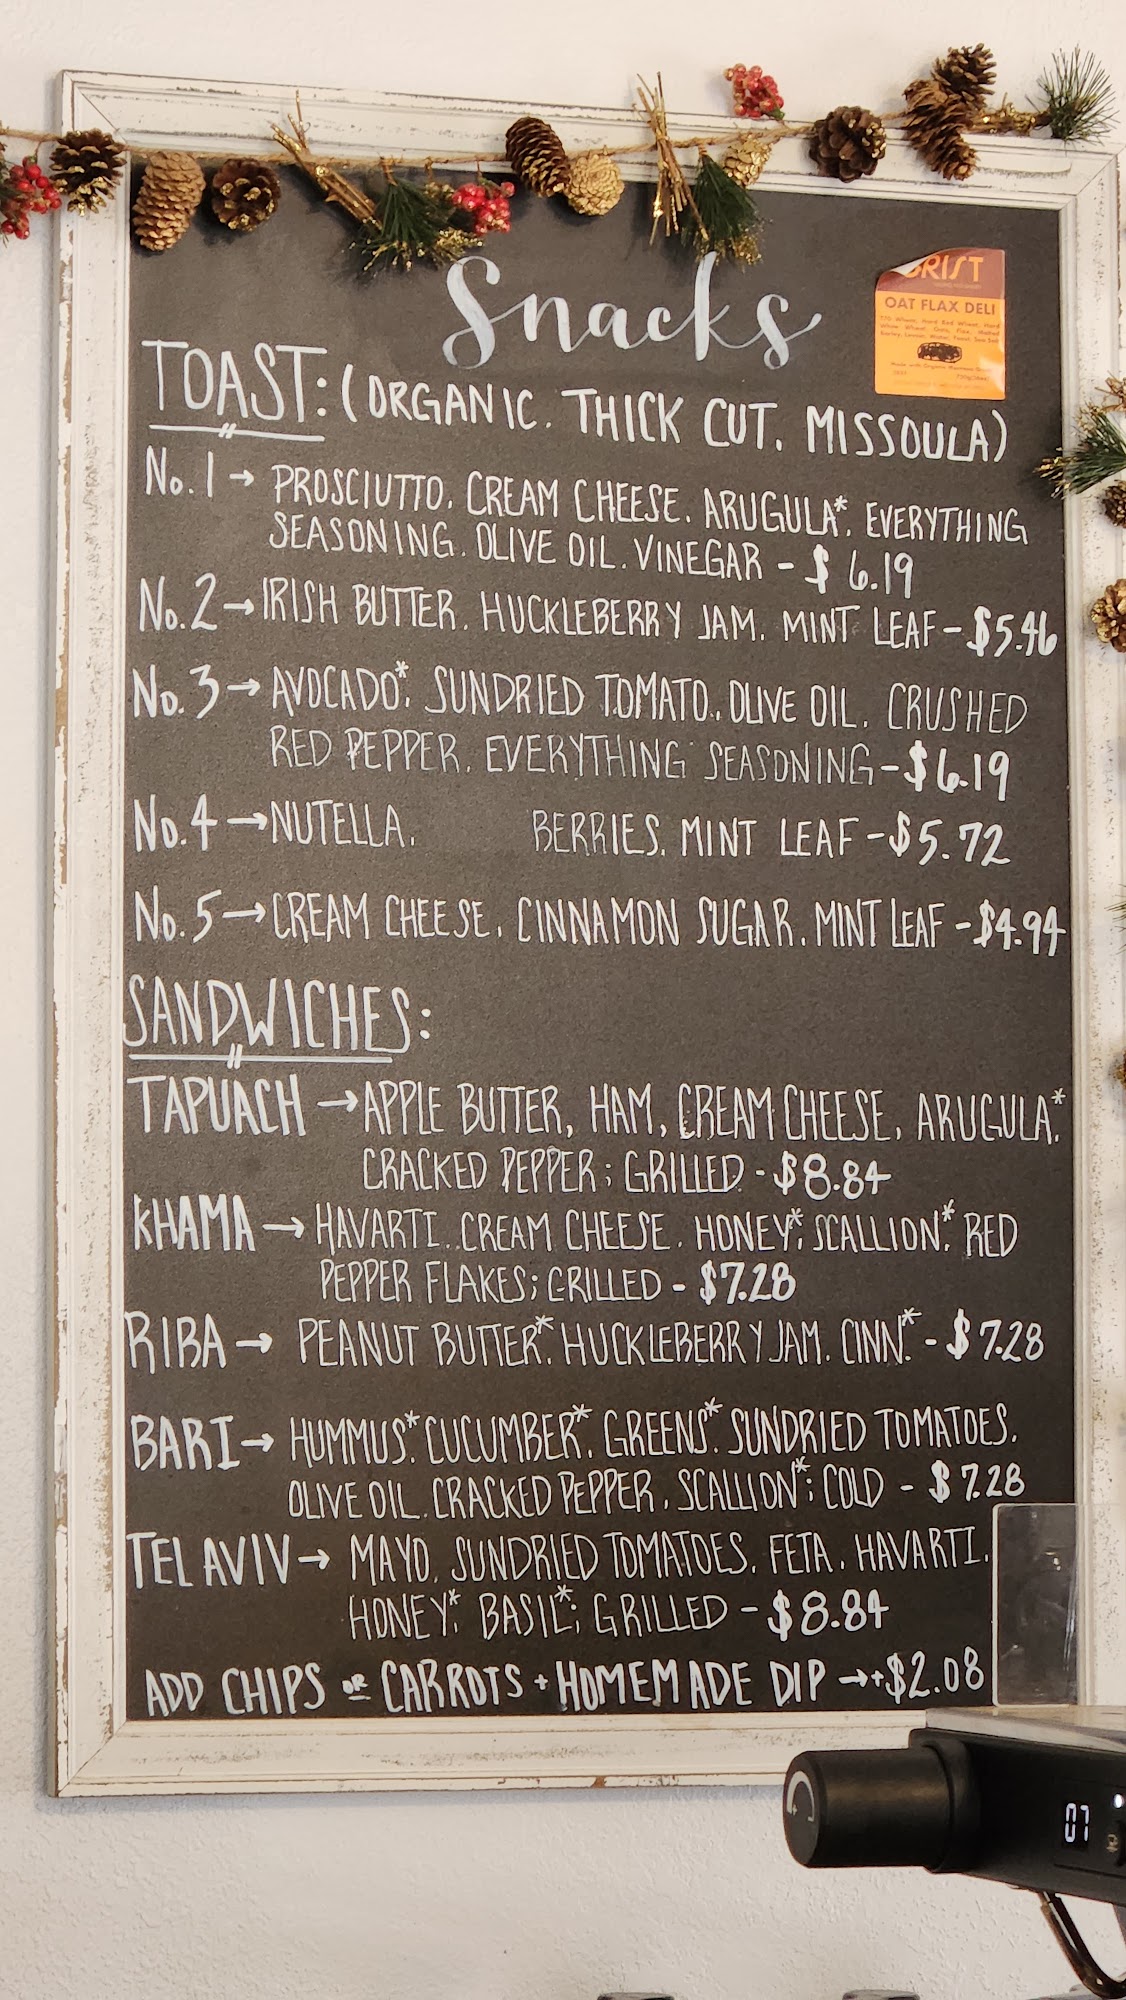 Snacks
GRIST
OAT FLAX DELI
TOAST: (ORGANIC. THICK CUT. MISSOULA)
No.1 → PROSCIUTTO. CREAM CHEESE. ARUGULA*. EVERYTHING
SEASONING. OLIVE OIL. VINEGAR - $6.19
No.2 → IRISH BUTTER. HUCKLEBERRY JAM. MINT LEAF - $5.46
No.3 → AVOCADO*. SUNDRIED TOMATO. OLIVE OIL. CRUSHED
RED PEPPER. EVERYTHING SEASONING - $6.19
No.4 → NUTELLA. BERRIES. MINT LEAF - $5.72
No.5 → CREAM CHEESE. CINNAMON SUGAR. MINT LEAF - $4.94
SANDWICHES:
TAPUACH → APPLE BUTTER, HAM, CREAM CHEESE, ARUGULA*.
CRACKED PEPPER; GRILLED - $8.84
KHAMA → HAVARTI. CREAM CHEESE. HONEY*. SCALLION*. RED
PEPPER FLAKES; GRILLED - $7.28
RIBA → PEANUT BUTTER*. HUCKLEBERRY JAM. CINN*. - $7.28
BARI → HUMMUS*. CUCUMBER*. GREENS*. SUNDRIED TOMATOES.
OLIVE OIL. CRACKED PEPPER. SCALLION*; COLD - $7.28
TEL AVIV → MAYO. SUNDRIED TOMATOES. FETA. HAVARTI.
HONEY*. BASIL*; GRILLED - $8.84
ADD CHIPS OR CARROTS + HOMEMADE DIP → +$2.08
07